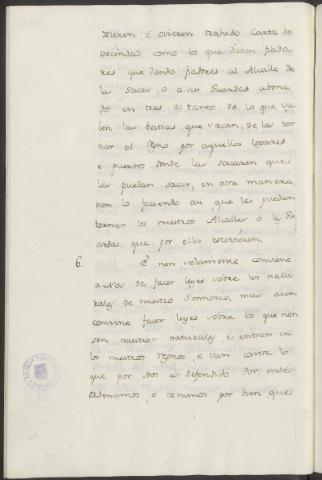 dieren, ó ovieren trahido Carta de
vecindad como lo que dieren para
res que dando fiadores al Alcalle de
las sacas, o a sus Guardas abona
dos en tres, ó tanto de lo que va
len las bestias que sacan, de las tor
nar al regno por aquellos logares
é puertos donde las sacaren que
las puedan sacar, en otra manera
non lo faciendo así que las puedan
tomar los nuestros Alcalles ó las Gu
ardas que por ellos estovieren.
6. É non solamente conviene
a Nos de facer leyes sobre los natu
rales de nuestro Sennorio, mas aun
conviene facer leyes sobre los que non
son nuestros naturales, é entran en
los nuestros regnos, e van contra lo
que por Nos es defendido: Por ende
Ordenamos, é tenemos por bien que